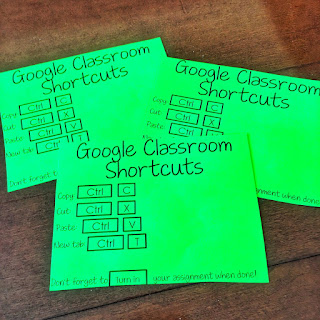 Google Classroom
Shortcuts
Copy Ctrl C
Cut Ctrl X
Paste Ctrl V
New tab Ctrl
Don't forget to
Google Classroom
Shortcuts
Copy
Cut
Paste
New tab
Google Classroom
Shortcuts
Copy Ctrl C
Cut Ctrl X
Paste Ctrl V
New tab Ctrl T
Don't forget to Turn in your assignment when done!